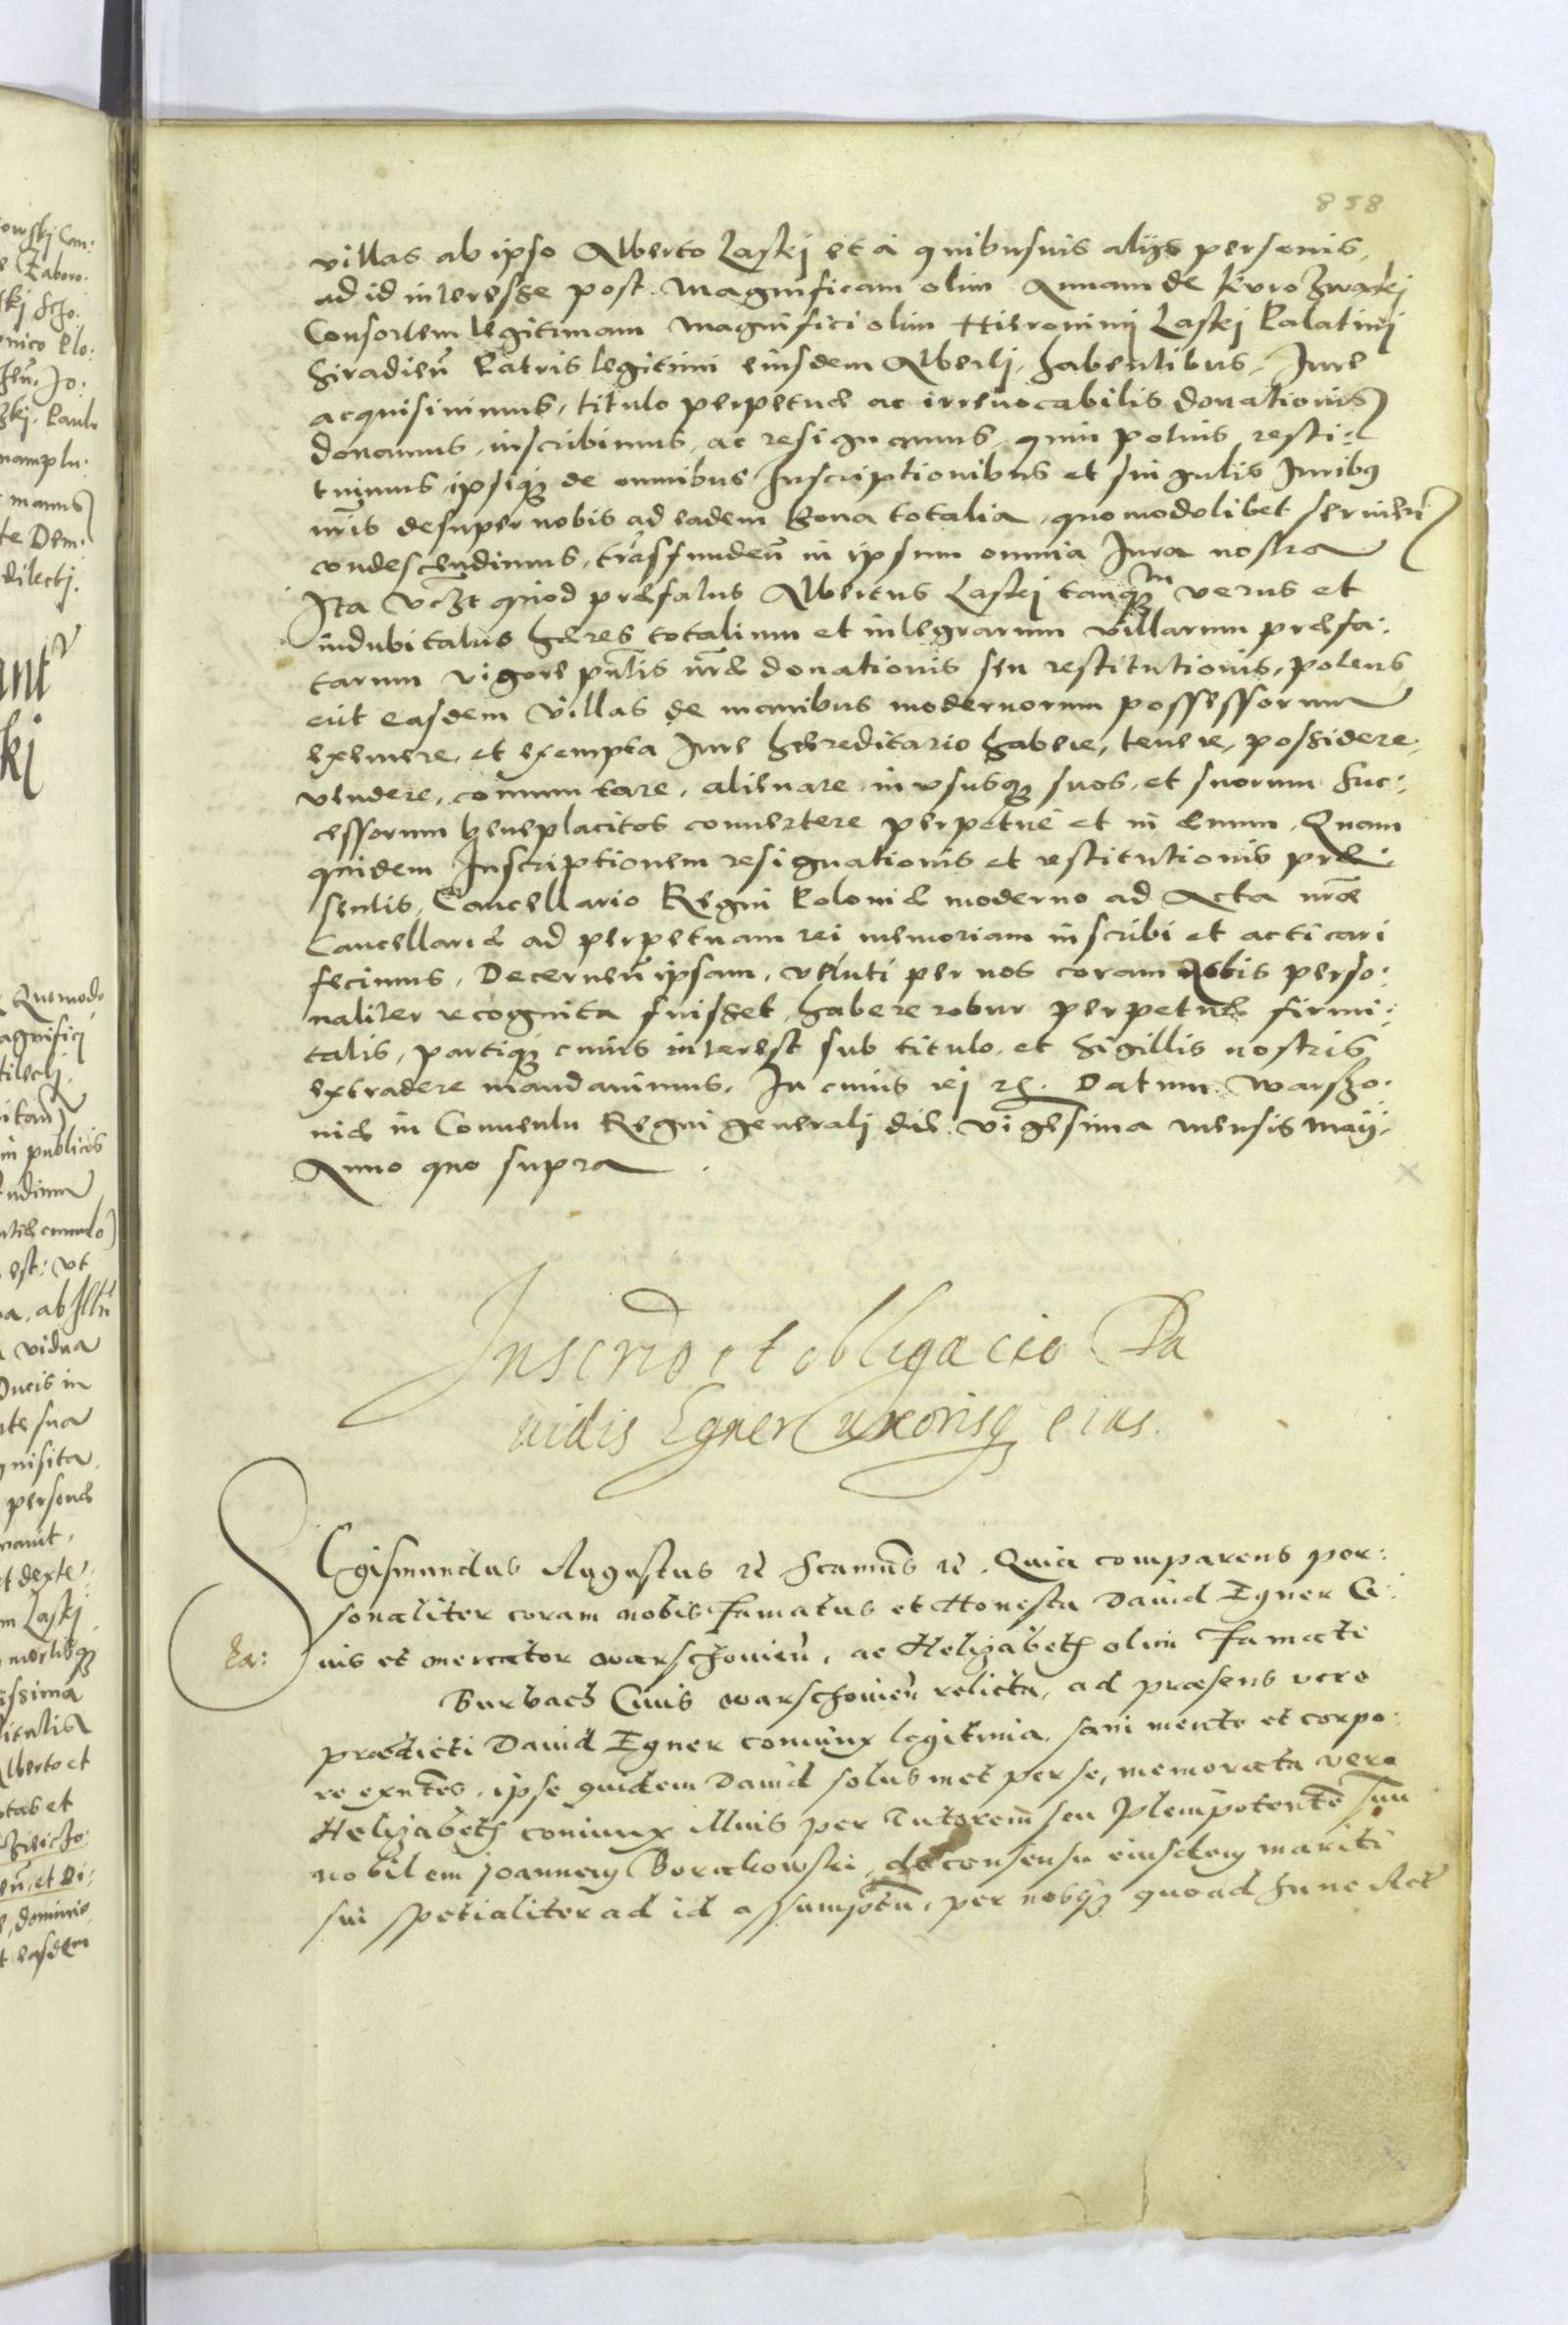 858
villas ab ipso Alberto Laskj et à quibusuis alijs personis,
ad id interesse post Magnificam olim Annam de Kurozwakj
Consortem legitimam Magnifici olim Hieronimj Laskj Palatinj
Siradieñ Patris legitimi eiusdem Albertj, habentibus, Jure
acquisiuimus, titulo perpetuæ ac irreuocabilis donationis
donamus, inscribimus, ac resignamus, quin potius resti:
tuimus, ipsiq; de omnibus Inscriptionibus et singulis Juribq
nr̃is desuper nobis ad eadem bona totalia, quomodolibet seruieñ
condescendimus, trãsfundeñ in ipsum omnia Jura nostra
Ita vcꝫt quod præfatus Albertus Laskj tanq;m verus et
indubitatus hæres totalium et integrarum villarum præfa:
tarum vigore pñtis nr̃æ donationis seu restitutionis, potens
erit easdem villas de manibus modernorum possessorum
eximere, et exempta Jure hæreditario habere, tenere, possidere,
vendere, comutare, alienare, in vsusq; suos, et suorum suc:
cessorum beneplacitos conuertere perpetuè et in æuum. Quam
quidem Inscriptionem resignationis et restitutionis præ:
sentis, Cancellario Regni Poloniæ moderno ad Acta nr̃æ
Cancellariæ ad perpetuam rei memoriam inscribi et acticari
fecimus, Decerneñ ipsam, veluti per nos coram nobis perso:
naliter recognita fuisset, habere robur perpetuæ firmi:
tatis, partiq; cuius interest sub titulo, et sigillis nostris
extradere mandauimus. In cuius rej rẽ. Datum Warszo:
uiæ in Conuentu Regni generalj die vigesima mensis Maij,
Anno quo supra.
Inscriõ et obligacio Da
uidis Egner uxorisq eius.
Sigismundus Augustus rẽ Scamũs rẽ. Quia comparens per:
sonaliter coram nobis Famatus et Honesta Dauid Egner Ci:
uis et mercator warschouieñ, ac Helizabeth olim Famati
Burbach Ciuis warschouieñ relicta, ad præsens vero
prædicti Dauid Egner coniunx legitima, sani mente et corpo:
re exñtes, ipse quidem Dauid solusmet per se, memorata vero
Helizabeth coniunx illius per Tutorem seu plenipotentẽ suũ
nobilem Joannem Borakowski, de consensu eiusdem mariti
sui spetialiter ad id assumptũ, per nosq; quoad hunc Act